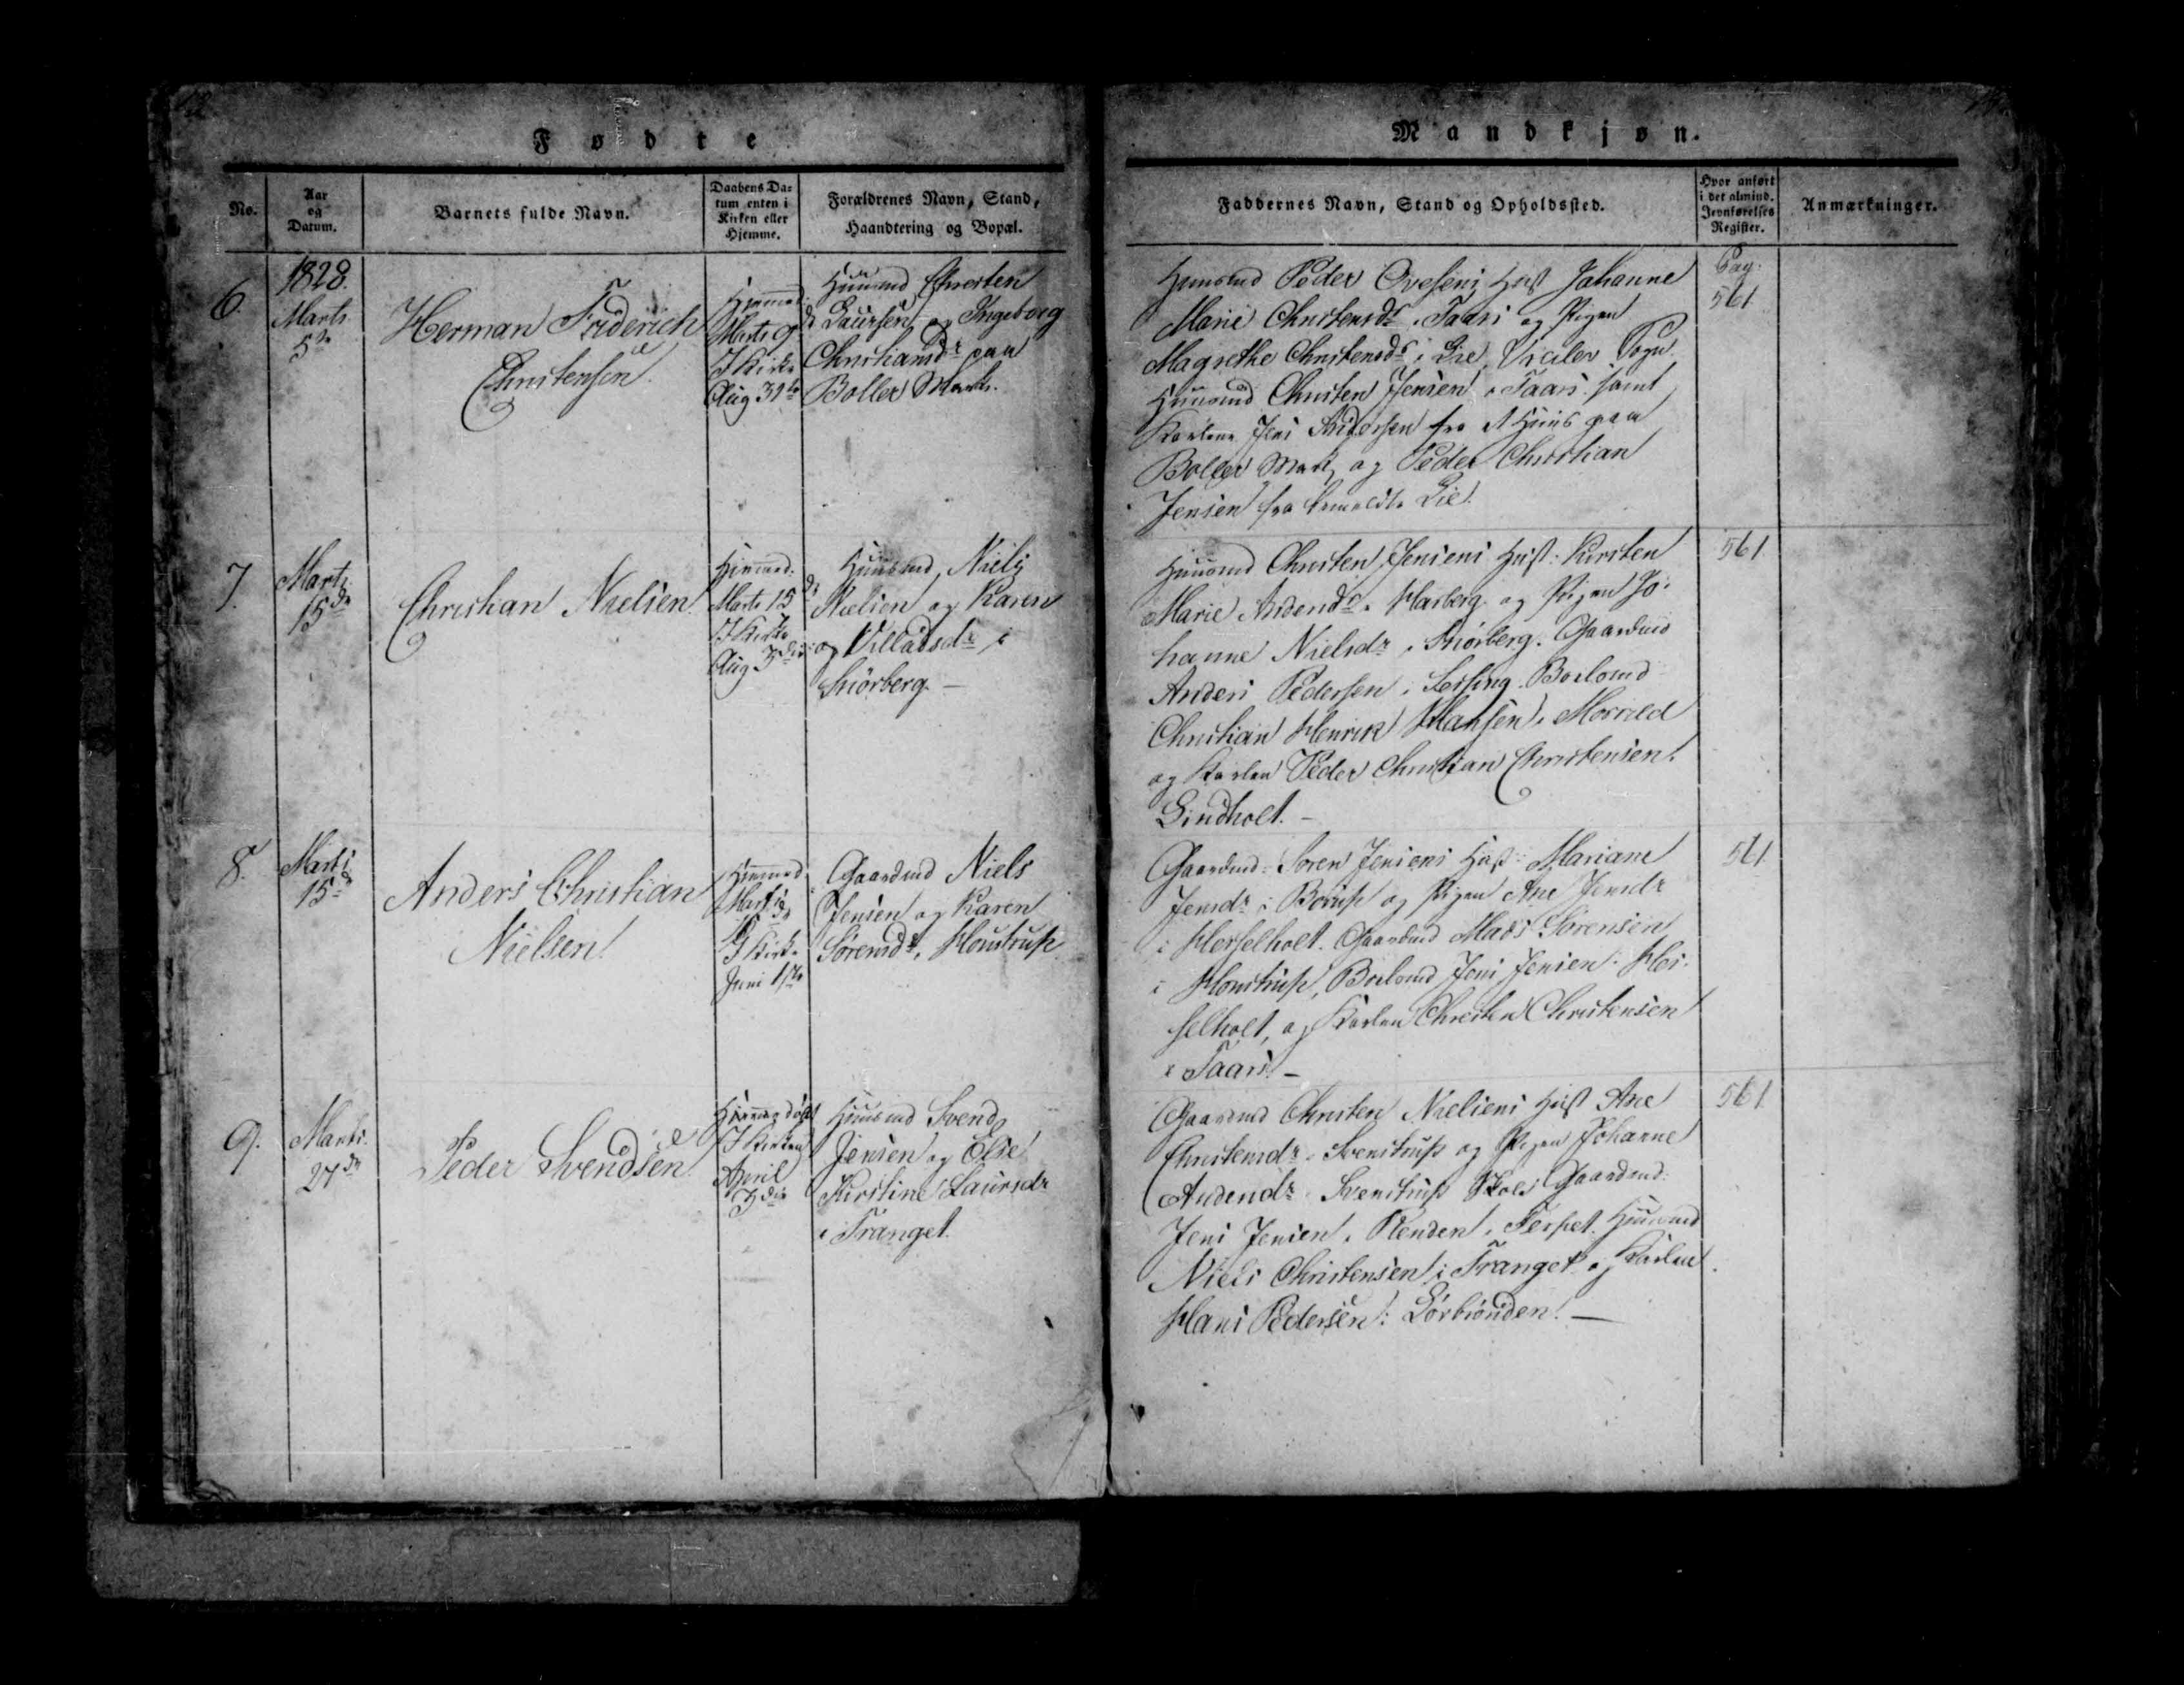 Fødte
No.
Aar
og
Datum.
Barnets fulde Navn.
Daabens Da-
tum enten i
Kirken eller
Hjemme.
Forældrenes Navn, Stand,
Haandtering og Bopæl.
6.
1828.
Marts
5te
Herman Friderich
Christensen
Hjemmed:
Marts 9
I Kirk
Aug 31te
Huusmd Christen
Laursen og Ingeborg
Christiansdr paa
Boller Mark.
7.
Marts
15de
Christian Nielsen
Hjemmed:
Marts 15de
I Kirk
Aug 3die
Huusmd, Niels
Nielsen og Karen
og Villadsdr i
Snörberg. —
8.
Marts
15de
Anders Christian
Nielsen
Hjemmed
Marts
I Kirk
Juni 1ste
Gaardmd Niels
Jensen og Karen
Sörensdr, Houstrup.
9.
Marts.
27de
Peder Svendsen
Hjemmedöbt
I Kirken
April
7de
Huusmd Svend
Jensen og Else
Kirstine Laursdr
i Tranget.
Mandkjøn.
Faddernes Navn, Stand og Opholdssted.
Hvor anført
i det almind.
Jevnførelses
Register.
Anmærkninger.
Huusmd Peder Ovesens Hust Johanne
Marie Christensdr i Taars og Pigen
Magrethe Christensdr i Lie, Sogn
Huusmd Christen Jensen i Taars samt
Karlene Jens Andersen fra et Huus paa
Boller Mark, og Peder Christian
Jensen fra bemeldte Lie.
Pag.
561
Huusmd Christen Jensens Hust. Kirsten
Marie Andersdr i Harberg og Pigen Jo-
hanne Nielsdr i Snörberg. Gaardmd
Anders Pedersen i Sersing. Boelsmd
Christian Henrik Hansen i Morrild
og Karlen Peder Christian Christensen i
Lindholt. —
561.
Gaardmd Soren Jensens Hust: Mariane
Jensdr i Borup og Pigen Ane Jensdr
i Hesselholt. Gaardmd Mads Sörensen
i Houstrup, Boelsmd Jens Jensen i Hes-
selholt, og Karlen Christen Christensen
i Taars. —
561
Gaardmd Christen Nielsens Hust Ane
Christensdr i Svenstrup og Pigen Johanne
Andersdr i Svenstrup Skole Gaardmd:
Jens Jensen i Renden i Terpet. Huusmd
Niels Christensen i Tranget og Karlen
Hans Pedersen i Lörbrönden. —
561